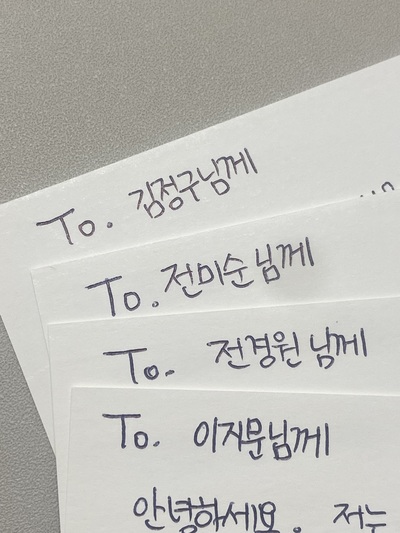 To. 김정구님께
To. 전미순님께
To. 전경원님께
To. 이지문님께
안녕하세요. 저는